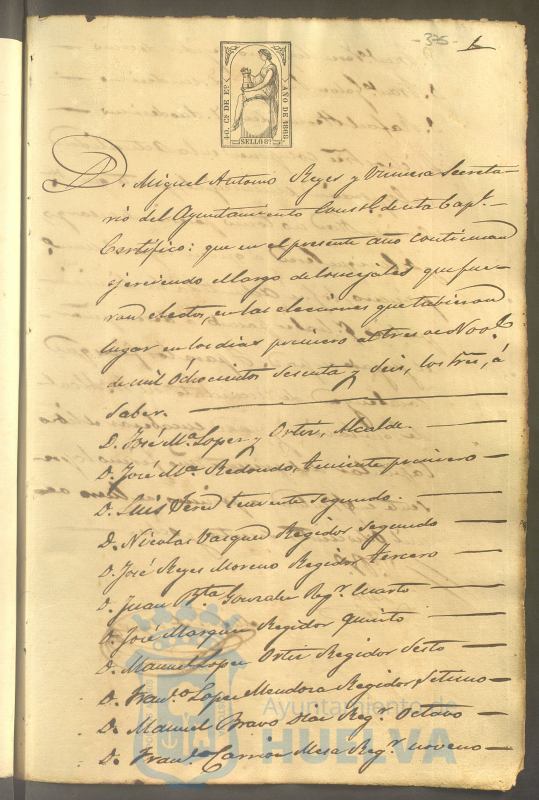 -375- 1
40. Cs. DE Eo. AÑO DE 1868.
SELLO 8º.
D. Miguel Antonio Reyes y Viniesa Secreta-
rio del Ayuntamiento Constl. de esta Capl.-
Certifico: que en el presente año continuan
ejerciendo el cargo de concejales que fue-
ran electos, en las elecciones que tubieron
lugar en los dias primero al tres de Nove.
de mil Ochocientos Sesenta y Seis, los Sres, á
Saber.
D. José Ma. Lopez y Ortiz, Alcalde.
D. José Ma. Redondo, teniente primero
D. Luis teniente segundo.
D. Nicolas Vazquez Regidor Segundo
D. José Reyes Moreno Regidor tercero
D. Juan Bta. Gonzalez Regr. Cuarto
D. José Marquez Regidor quinto
D. Manuel Lopez Ortiz Regidor Sesto
D. Franco. Lopez Mendoza Regidor Setimo
D. Manuel Bravo Diaz Regr. Octavo
D. Franco. Carrion Mesa Regr. noveno
Ayuntamiento de
HUELVA